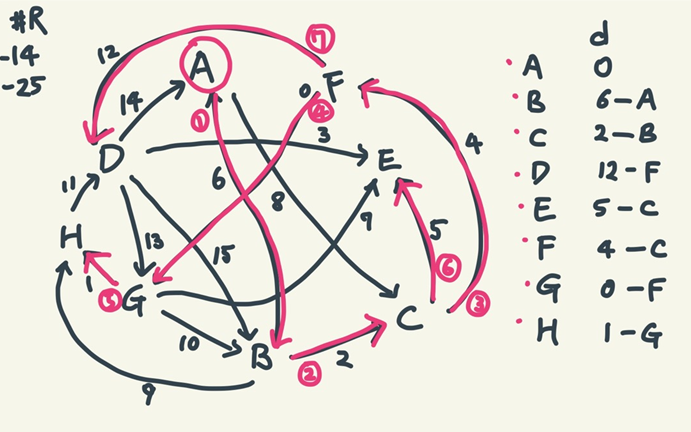 #R
-14
-25
12
⑦
A
0
F
④
14
①
3
4
D
E
6
8
9
11
5
H
13
15
⑥
1
⑤
G
C
③
10
B
2
②
9
d
A 0
B 6-A
C 2-B
D 12-F
E 5-C
F 4-C
G 0-F
H 1-G